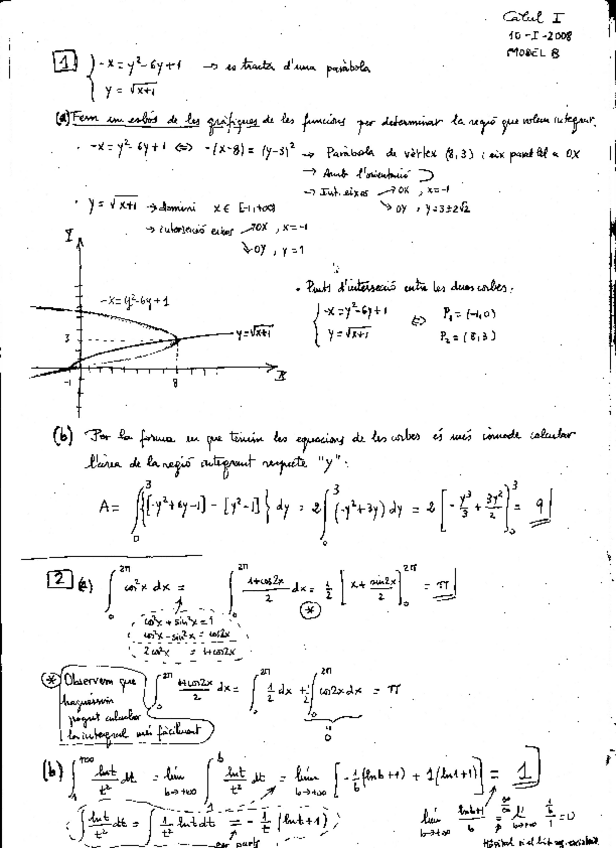 Càlcul I
10-I-2008
MODEL B
1 { -x = y²-6y+1 → es tracta d'una paràbola
y = √x+1
(a) Fem un esbós de les gràfiques de les funcions per determinar la regió que volem integrar.
· -x = y²-6y+1 ⇔ -(x-8) = (y-3)² → Paràbola de vèrtex (8,3) i eix paral·lel a OX
→ Amb l'orientació ⊃
→ Int. eixos → OX, x=-1
→ OY, y=3±2√2
· y = √x+1 → domini x ∈ [-1,+∞)
→ intersecció eixos → OX, x=-1
→ OY, y=1
Y
· Punts d'intersecció entre les dues corbes:
-x = y²-6y+1
{ -x = y²-6y+1 ⇔ P₁ = (-1,0)
y = √x+1 P₂ = (8,3)
3
y = √x+1
-1 8 X
(b) Per la forma en que tenim les equacions de les corbes és més còmode calcular
l'àrea de la regió integrant respecte "y":
A = ∫₀³ {[-y²+6y-1] - [y²-1]} dy = 2 ∫₀³ (-y²+3y) dy = 2 [-y³/3 + 3y²/2]₀³ = 9
2 (a) ∫₀^2π cos²x dx = ∫₀^2π 1+cos2x/2 dx = 1/2 [x + sin2x/2]₀^2π = π
(*)
cos²x + sin²x = 1
cos²x - sin²x = cos2x
2cos²x = 1+cos2x
(*) Observem que
haguéssim
pogut calcular
la integral més fàcilment
∫₀^2π 1+cos2x/2 dx = ∫₀^2π 1/2 dx + 1/2 ∫₀^2π cos2x dx = π
0
(b) ∫₁^+∞ lnt/t² dt = lim b→+∞ ∫₁^b lnt/t² dt = lim b→+∞ [-1/b (lnb+1) + 1(ln1+1)] = 1
∫ lnt/t² dt = ∫ 1/t² lnt dt = -1/t (lnt+1)
per parts
lim b→+∞ lnb+1/b = ∞/∞ = lim b→+∞ 1/b/1 = 0